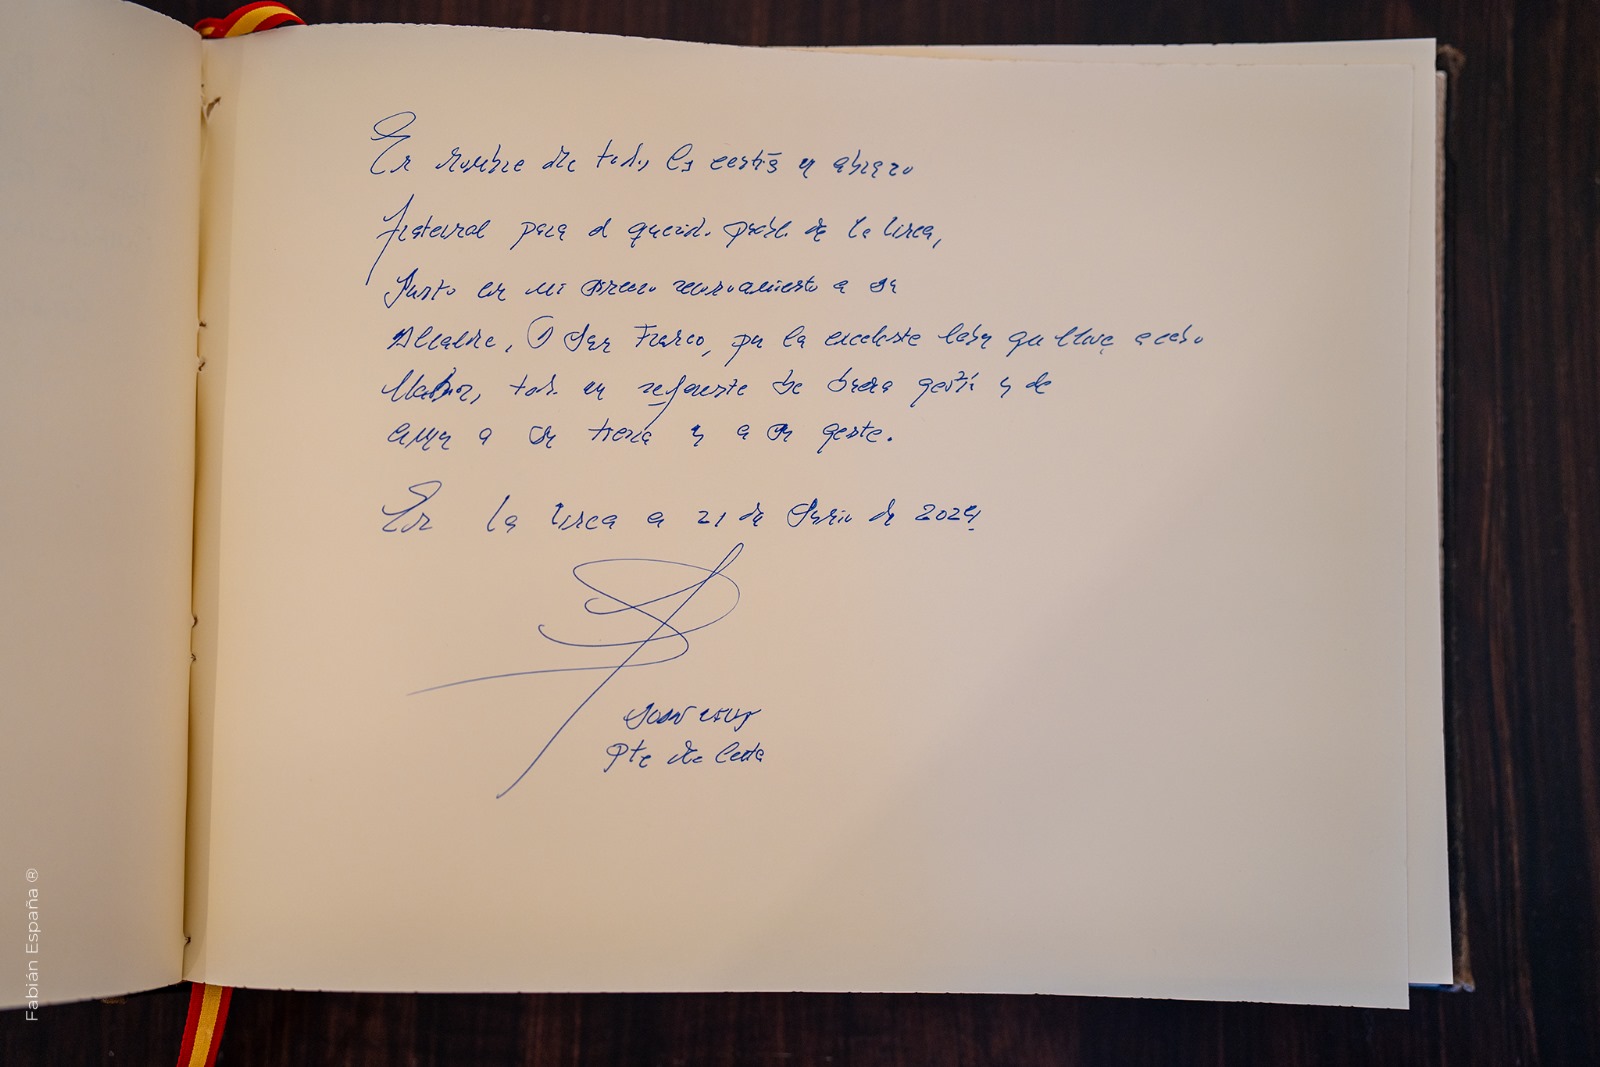 En nombre de todos los ceutíes un abrazo
fraternal para el querido pueblo de la Línea,
Junto con mi sincero reconocimiento a su
Alcalde, D Juan Franco, por la excelente labor que lleva a cabo
todo un referente de buena gestión y de
amor a su tierra y a su gente.
En la Línea a 21 de Junio de 2024
Juan Vivas
Pte de Ceuta
Fabián España ®